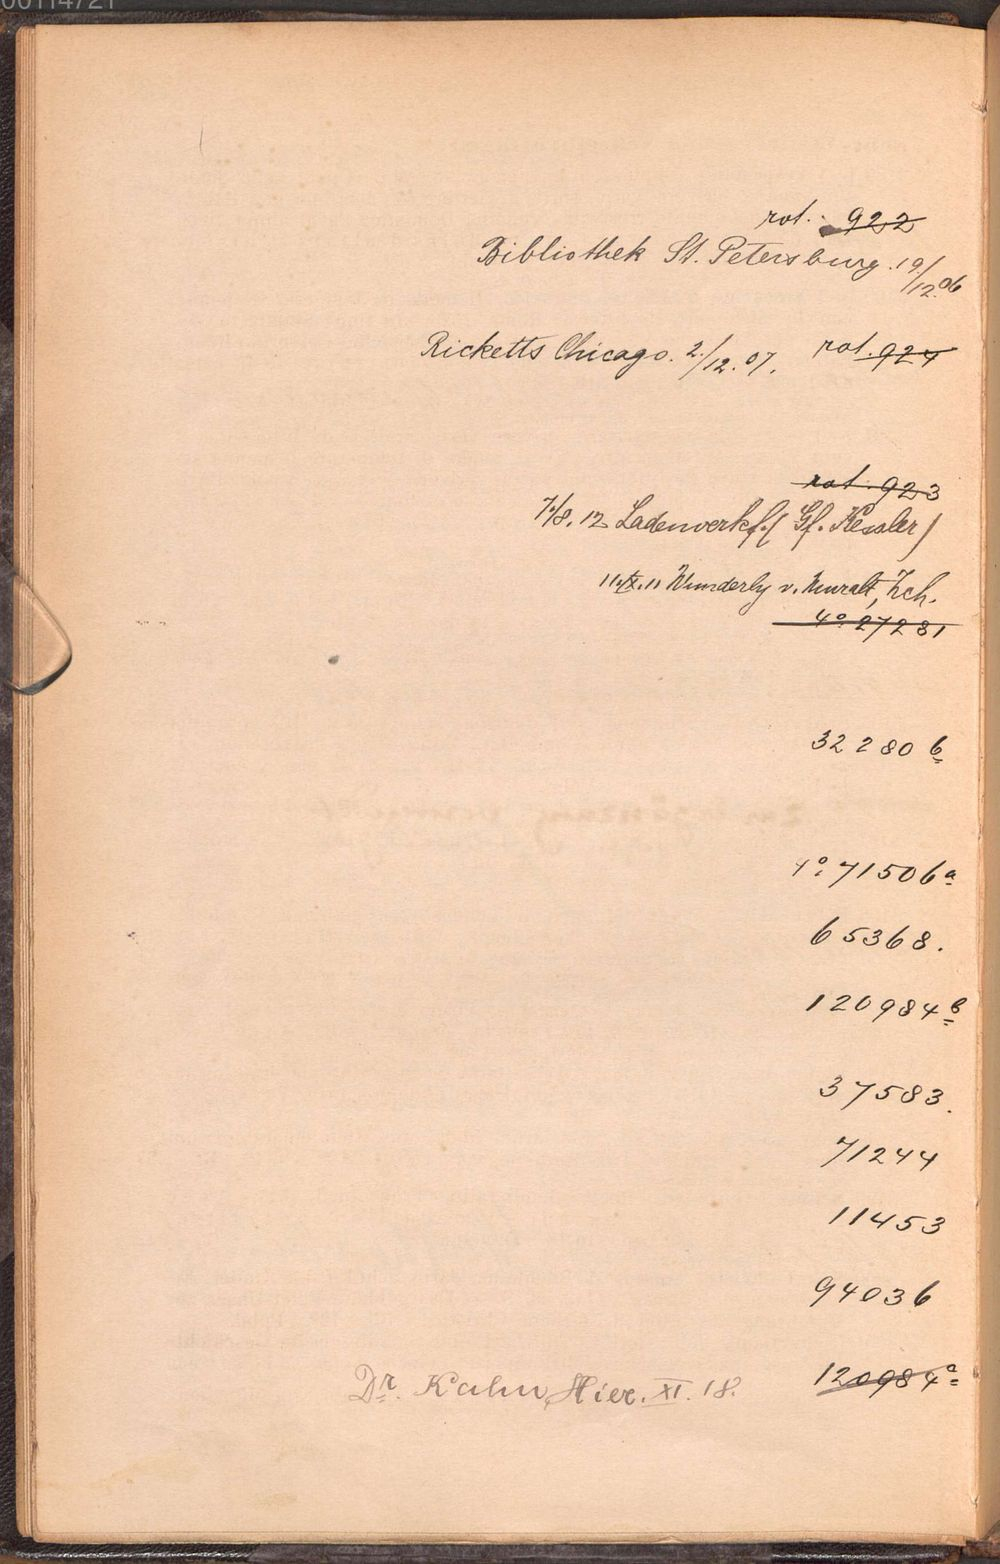 00114721
rot. 922
Bibliothek St. Petersburg. 19/12.06
Ricketts Chicago. 2./12.07. rot. 924
rot. 923
7./8. 12 Ladenverkf. (Gf. Kessler)
11.X.11 Wunderly v. Muralt, Zch.
4° 27281
32280 b
4° 71506 a
65368.
120984 b
37583.
71244
11453
94036
Dr. Kahn, Hier. XI. 18. 120984 a